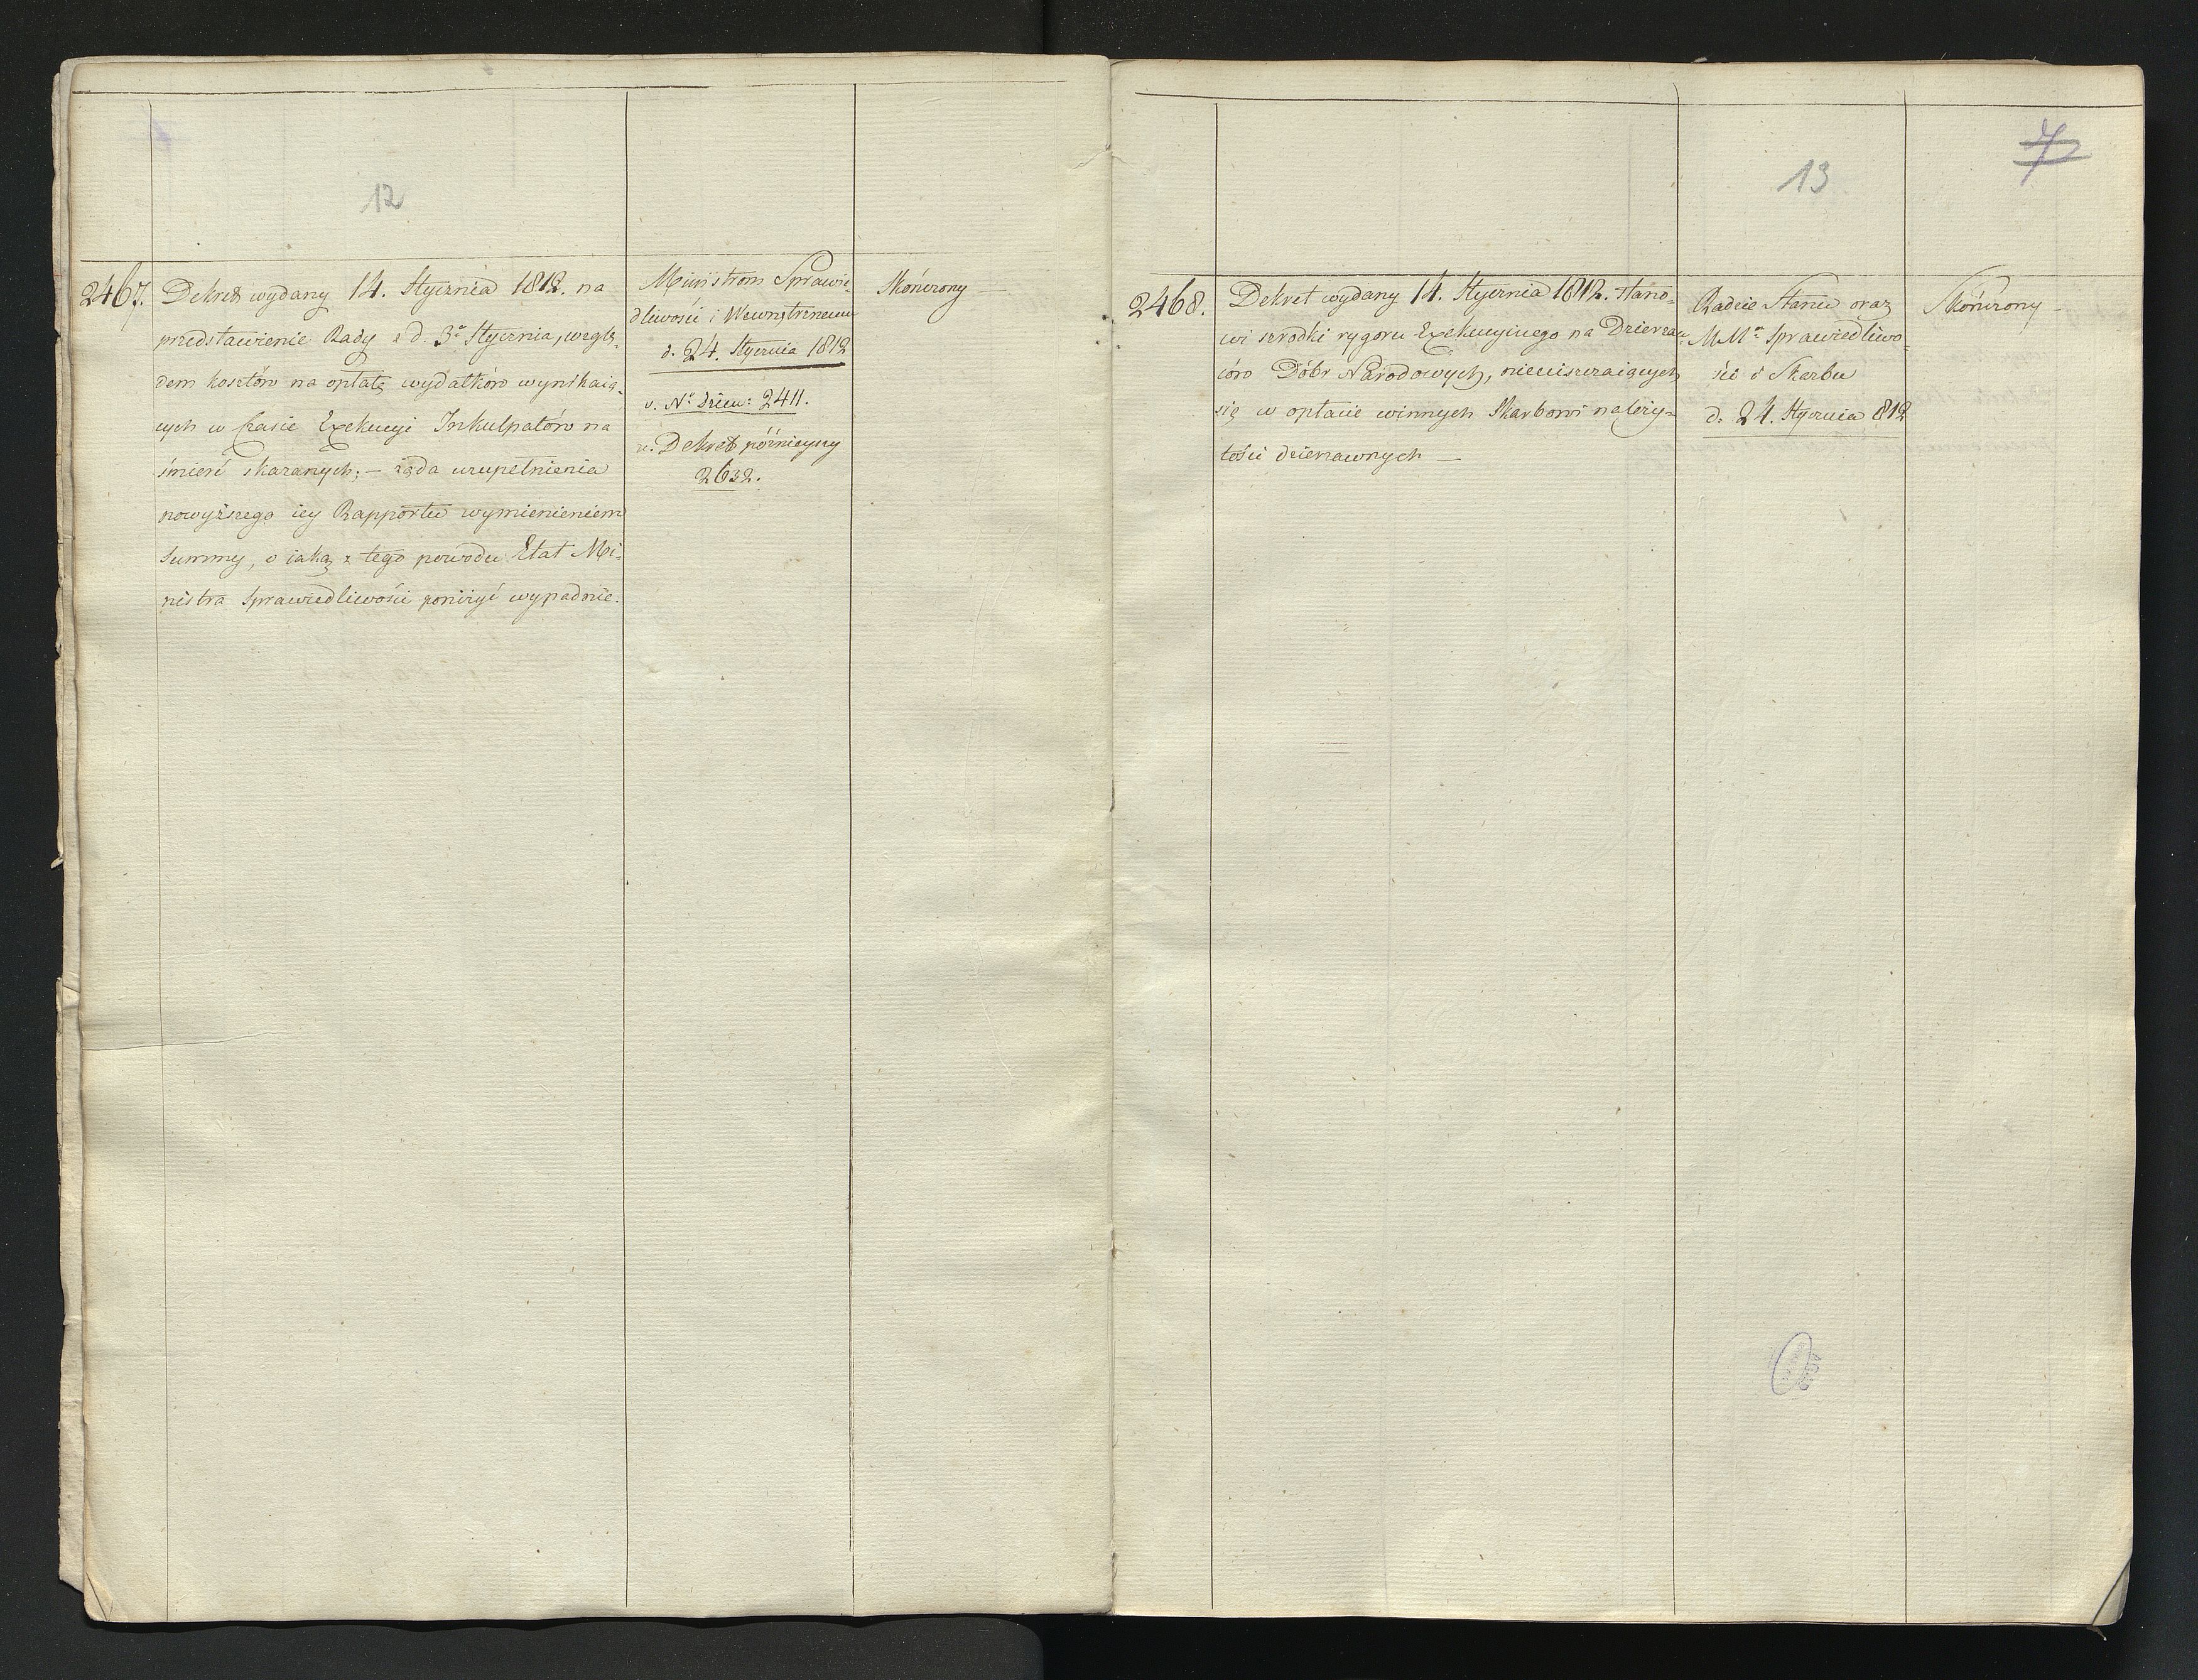 12
2467. Dekret wydany 14. Stycznia 1812. na
przedstawienie Rady z d. 3º Stycznia, wzglę-
dem kosztów na opłatę wydatków wynikaią-
cych w czasie Exekucyi Inkulpatów na
śmierć skazanych; – żąda uzupełnienia
powyższego iey Rapportu wymienieniem
Summy, o iaką z tego powodu Etat Mi-
nistra Sprawiedliwości zniżyć wypadnie.
Ministrom Sprawie-
dliwości i Wewnętrznemu
d. 24. Stycznia 1812
v. Nº Dzien: 2411.
v. Dekret późnieyszy
2632.
Skończony
13
7
2468. Dekret wydany 14. Stycznia 1812. stano-
wi szrodki rygoru Exekucyinego na Dzierzaw-
ców Dóbr Narodowych, nieuiszczaiących
się w opłacie winnych Skarbowi należy-
tości dzierzawnych —
Radzie Stanu oraz
MMº Sprawiedliwo-
ści i Skarbu
d. 24. Stycznia 812
Skończony –